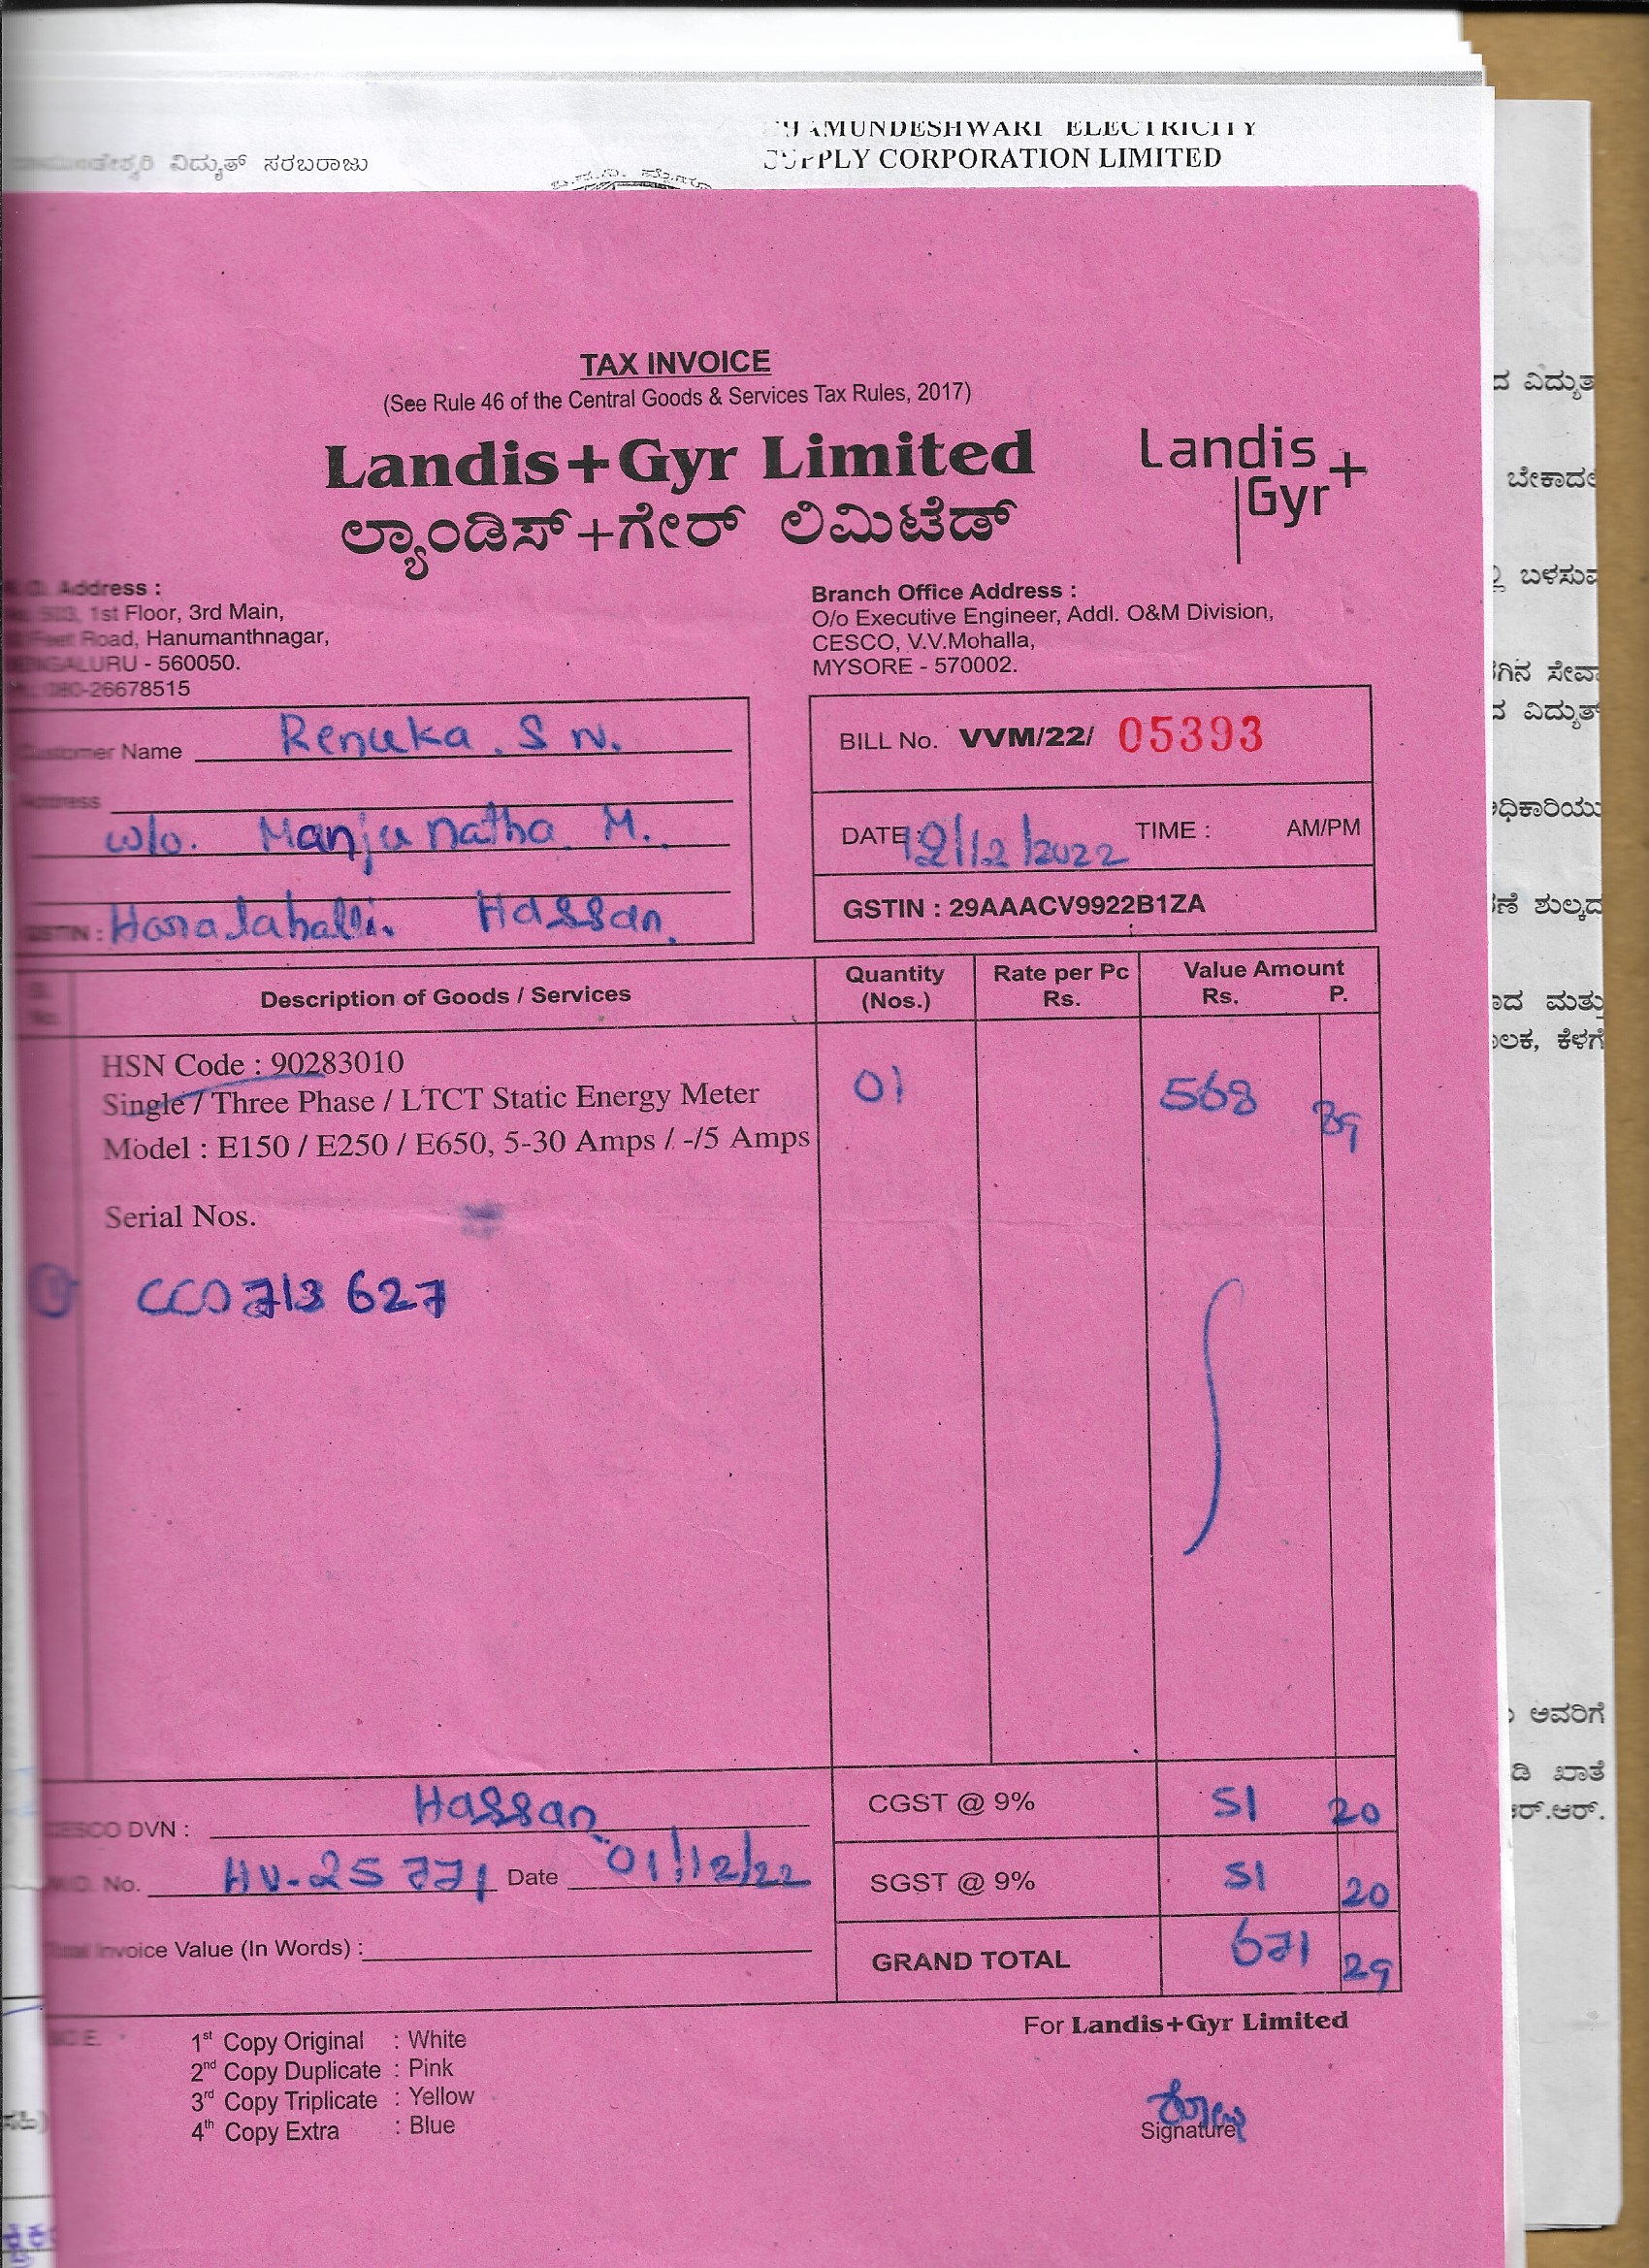 AMUNDESHWARI ELECTRICITY
SUPPLY CORPORATION LIMITED
ವಿದ್ಯುತ್ ಸರಬರಾಜು
TAX INVOICE
(See Rule 46 of the Central Goods & Services Tax Rules, 2017)
Landis+Gyr Limited
ಲ್ಯಾಂಡಿಸ್+ಗೇರ್ ಲಿಮಿಟೆಡ್
Landis+
Gyr
Address :
1st Floor, 3rd Main,
Feet Road, Hanumanthnagar,
BENGALURU - 560050.
080-26678515
Branch Office Address :
O/o Executive Engineer, Addl. O&M Division,
CESCO, V.V.Mohalla,
MYSORE - 570002.
Customer Name Renuka. S N.
Address
w/o. Manjunatha M.
GSTIN : Haralahalli. Hassan.
BILL No. VVM/22/ 05393
DATE : 12/12/2022 TIME : AM/PM
GSTIN : 29AAACV9922B1ZA
Sl. No. Description of Goods / Services Quantity (Nos.) Rate per Pc Rs. Value Amount Rs. P.
HSN Code : 90283010
Single / Three Phase / LTCT Static Energy Meter 01 568 89
Model : E150 / E250 / E650, 5-30 Amps / -/5 Amps
Serial Nos.
CC0713627
CESCO DVN : Hassan CGST @ 9% 51 20
No. HV-25771 Date 01/12/22 SGST @ 9% 51 20
Total Invoice Value (In Words) : GRAND TOTAL 671 29
1st Copy Original : White
2nd Copy Duplicate : Pink
3rd Copy Triplicate : Yellow
4th Copy Extra : Blue
For Landis+Gyr Limited
Signature
ದ ವಿದ್ಯುತ
ಬೇಕಾದಲ
ಬಳಸುವ
ಗಿನ ಸೇವಾ
ವಿದ್ಯುತ್
ಧಿಕಾರಿಯು
ಣೆ ಶುಲ್ಕದ
ಾದ ಮತ್ತು
ಲಕ, ಕೆಳಗೆ
ಅವರಿಗೆ
ಡಿ ಖಾತೆ
ಆರ್.ಆರ್.